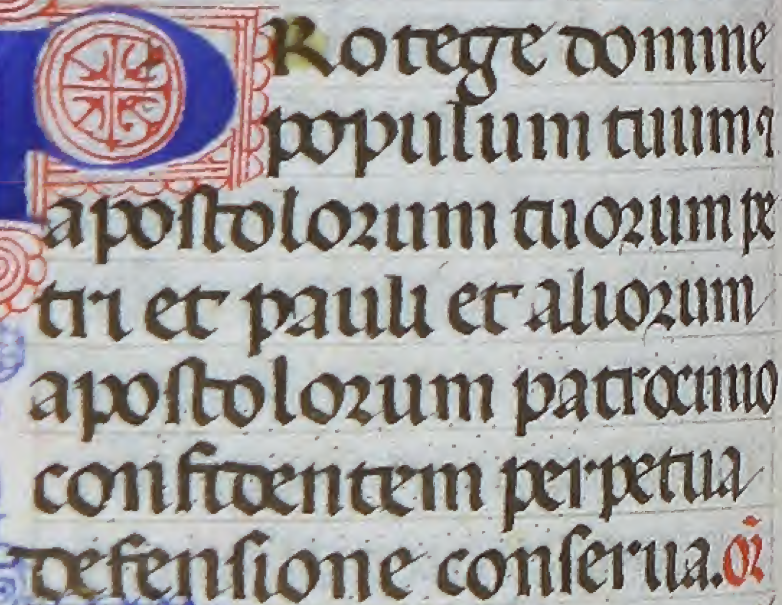 PRotege domine
populum tuum ⁊
apostolorum tuorum pe
tri et pauli et aliorum
apostolorum patrocinio
confidentem perpetua
defensione conserua. or̄